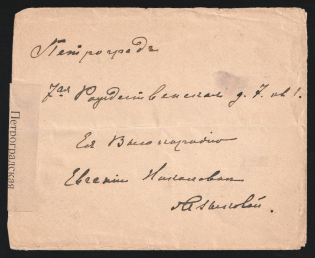 Петроградъ
7ая Рождественская д. 7. кв 1.
Ея Высокородію
Евгеніи Николаевнѣ
Языковой.
Петроградская